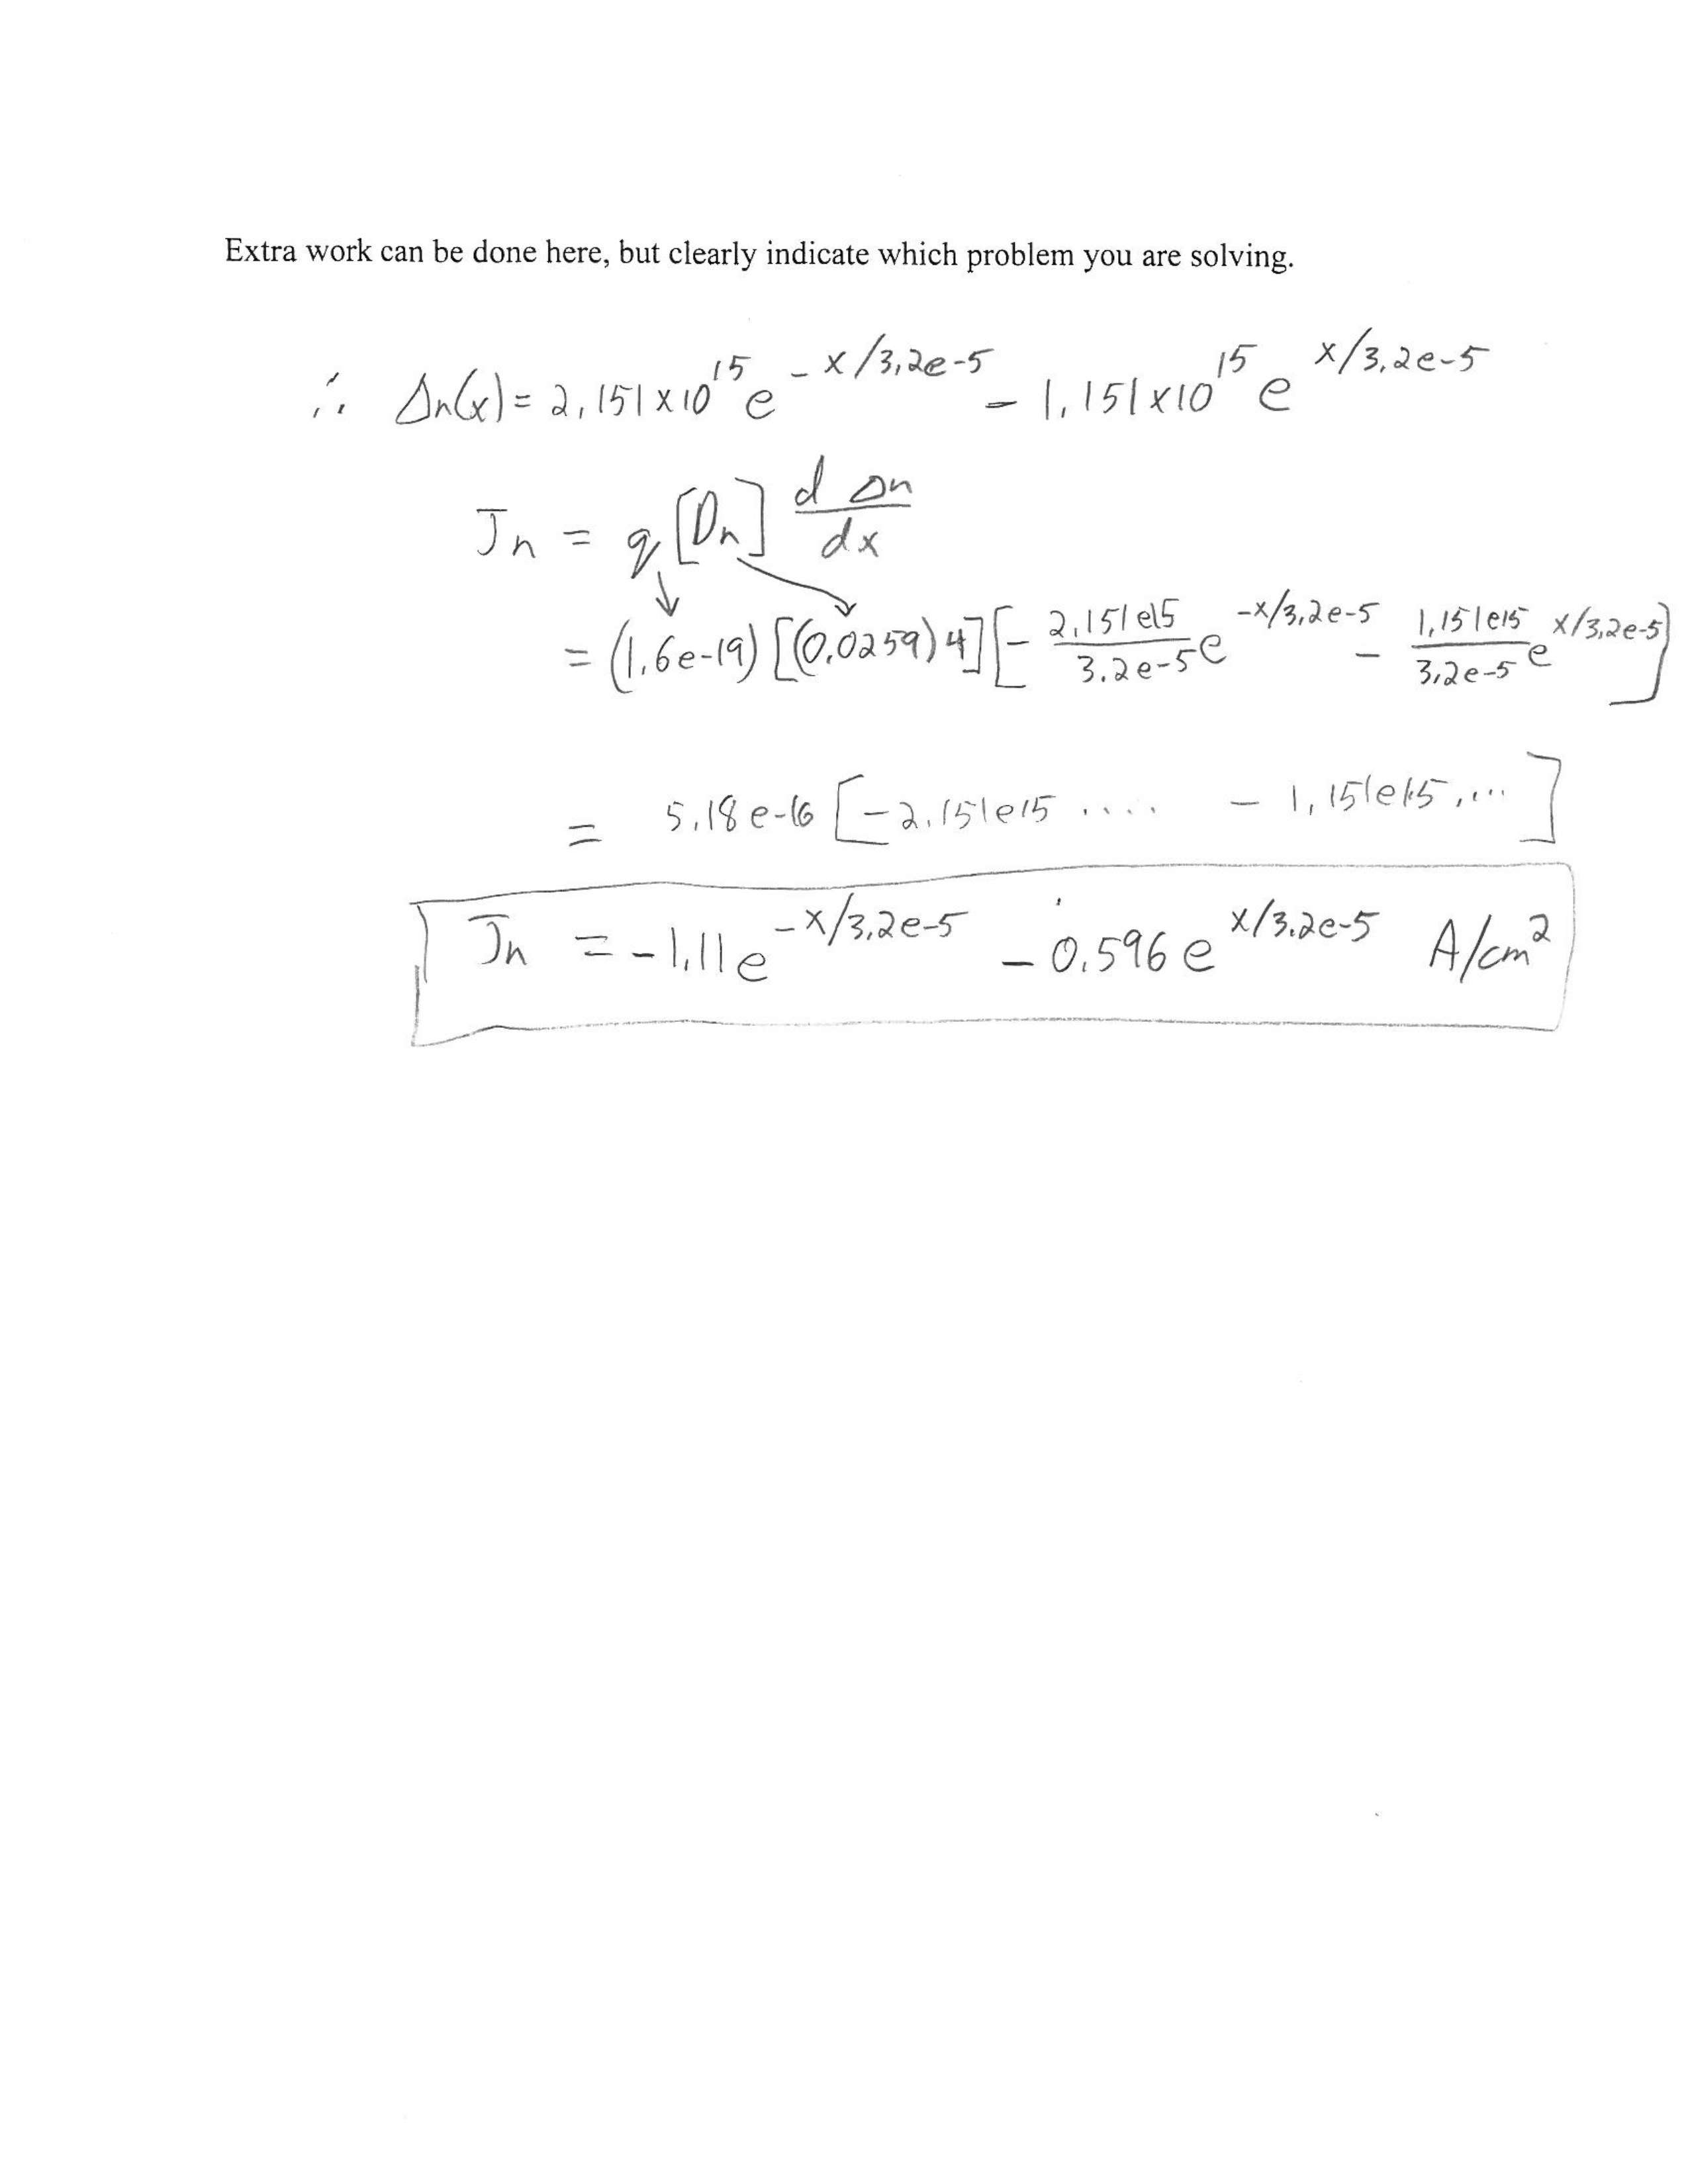 Extra work can be done here, but clearly indicate which problem you are solving.
∴ Δn(x) = 2.151 x 10^15 e^-x/3.2e-5 - 1.151 x 10^15 e^x/3.2e-5
Jn = q [Dn] d Δn / dx
= (1.6e-19) [(0.0259) 4] [- 2.151e15 / 3.2e-5 e^-x/3.2e-5 - 1.151e15 / 3.2e-5 e^x/3.2e-5]
= 5.18e-16 [-2.151e15 .... - 1.151e15 ....]
Jn = -1.11 e^-x/3.2e-5 - 0.596 e^x/3.2e-5 A/cm^2